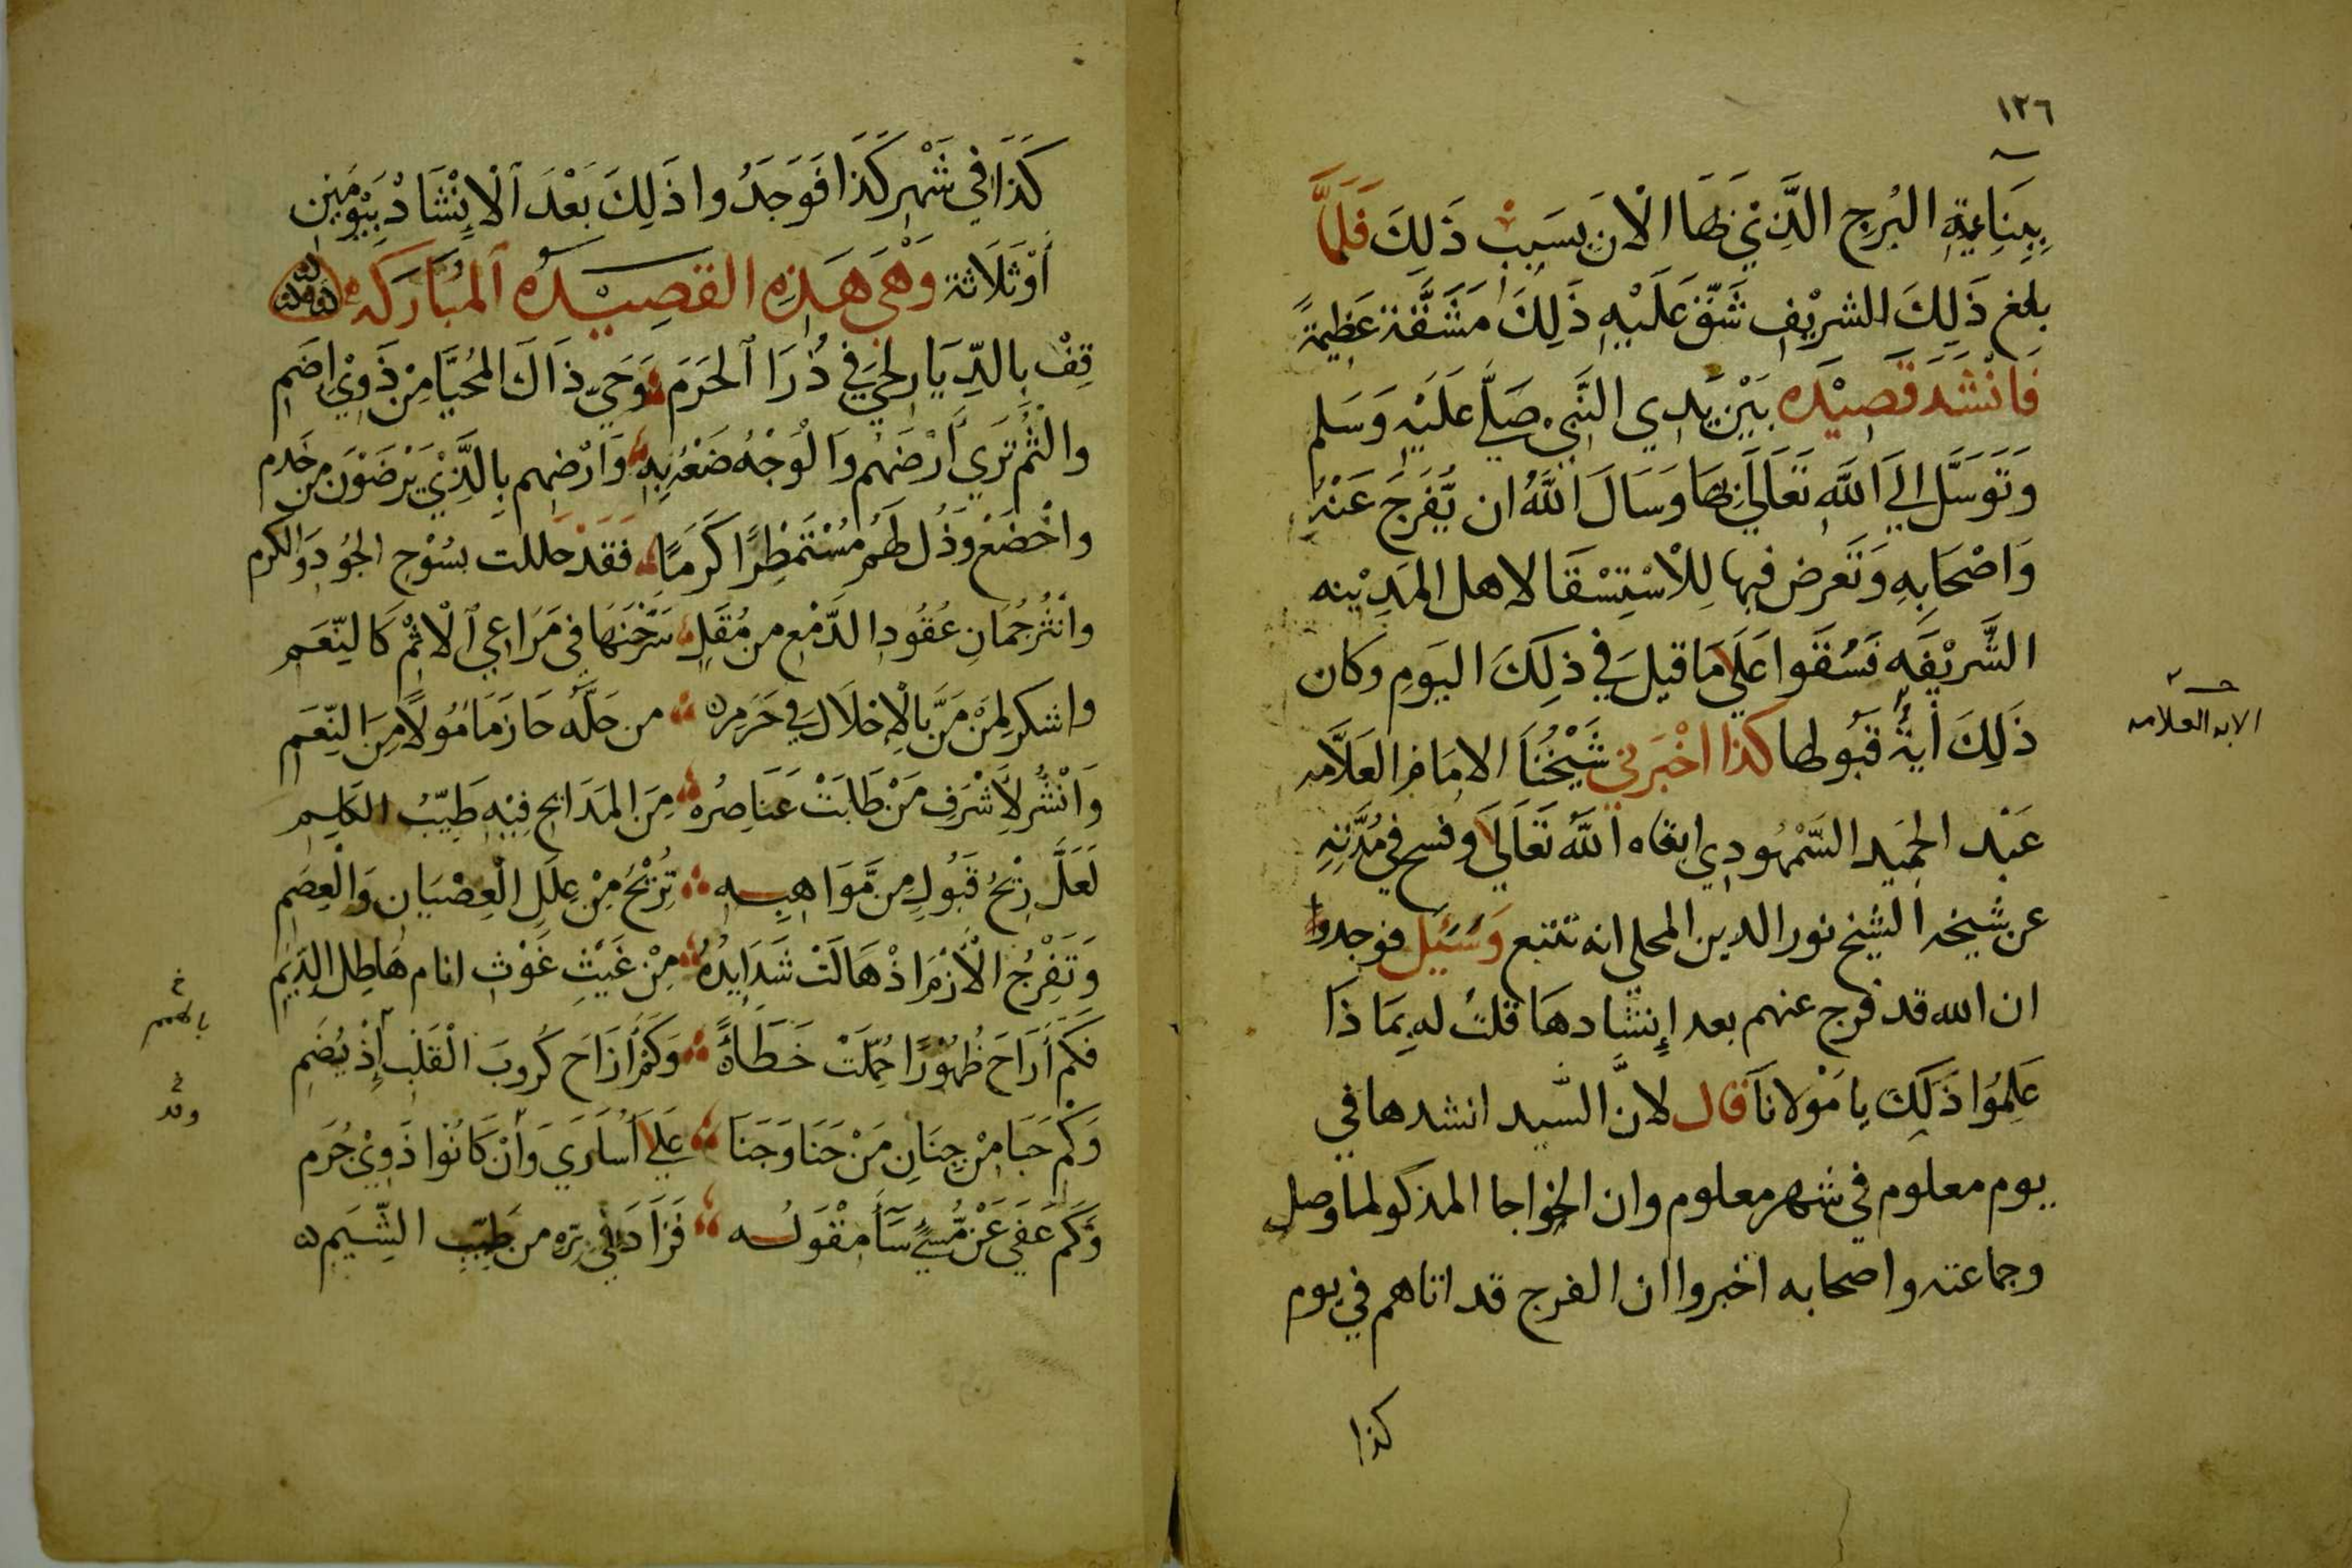 ١٢٦
بِبِنَايَةِ البُرجِ الَّذِيْ لَهَا الْانَ بِسَبَبِ ذَلِكَ فَلَمَّا
بلغ ذَلِكَ الشريْفِ شَقَّ عَلَيْهِ ذَلِكَ مَشَقَّة عَظِيمَةً
فَانْشَدَ قَصِيْدَه بَيْن يَدي النَّبِي صَلَّي عَلَيْهِ وَسَلم
وَتَوَسَّل اِلَي اَللَّهِ تَعَالَي بِهَا وَسَالَ اَللَّهُ ان يُفَرجَ عَنْهُ
وَاصْحَابِهِ وَتَعَرض فيها لِلْاسْتِسْقَا لاهل المَدِيْنه
الشَّرِيْفَه فَسُقَوا عَلَي مَا قيلَ فِي ذلِكَ اليَومِ وكان
ذَلِكَ أيةُ قَبُولها كَذا اخْبَرني شَيْخُنَا الامَام العَلاَّمه
الايه العلامه
عَبْد الحميد السَّمْهُودِي ابقاه اَللَّه تَعَالَي وفسح فِي مُدَّتِهِ
عن شيخه الشيخ نور الدين المحلي انه تتبع وَسُئِل فوجدوا
ان الله قد فرج عنهم بعد إنشادهَا قلتُ له بِمَا ذَا
عَلِمُوا ذَلِكَ يا مَوْلانَا قال لانَّ السَّيد انشدها في
يوم معلوم في شهر معلوم وان الخواجا المذكو لما وصل
وجماعته واصحابه اخبروا ان الفرج قد اتاهم في يوم
كذا
كَذَا فِي شَهْرِ كَذَا فَوَجَدُوا ذَلِكَ بَعْدَ اَلْإِنْشَادْ بِيَوْمَين
أَوْثَلَاثة وَهْيَ هَذِهِ القصِيْدَه اَلمُبَارَكَه
قِفْ بِالدِّيَارِ لِحَيّ فِي ذُرَا اَلحَرَم وَحَيّ ذاَكَ المُحيَّا مِنْ ذَوِيْ اِضَمِ
وَالْثُم تَرَي أَرْضَهُم وَالْوَجْهُ ضَعْهُ بِهِ وَارْضِهم بِالَّذِيْ يَرْضَوْنَ مِن خَدم
واخْضَعْ وَذُل لَهُم مُسْتَمْطِرًا كَرَمًا فَقَدْ حللت بسُوْحِ الجُودِ وَالكرم
وانْثُر جُمَانِ عُقُودِ الدَّمْعِ من مُقَلٍ سَرَّحْتَهَا فِي مَرَاعِي اَلْاثْمِ كَالنِّعَم
واشكر لِمَنْ مَنَّ بِالْإِحْلَال فِي حَرَمِ من حَلَّه حَازَ مَامُولاً مِنَ النِّعَم
وَانْشُر لِأَشْرَفِ مَنْ طَابَتْ عَنَاصِرُه مِنَ المَدَايح فِيْهِ طَيِّبُ الكَلِم
لَعَلَّ رِيْحُ قَبُولٍ مِن مَّوَاهِبِه تُزِيْحُ مِنْ عِلَلِ الْعِصْيَانِ وَالْعِصَمِ
وَتَفْرِجُ الْأَزْمَ اذْ هَالَتْ شَدَايدُهُ مِنْ غَيْثِ غَوْثِ انام هَاطِل الدِّيَمِ
فَكَم أَرَاحَ ظُهُوْرًا حُمِّلَتْ خَطَأً وَكَمْ أَزَاحَ كُرُوبَ الْقَلْبِ إِذْ يُضَمِ
وَكَمْ حَبَا مِنْ جِنَانِ مَنْ حَنَا وَجَنَا عَلَي أُسَارَي وَأنْ كَانُوا ذَوِيْ جُرَم
وَكَم عَفَي عَنْ مُّسِيءٍ سَآءَ مِقْوَلُه فَزَادَ فِي بِرّه من طَيِّبِ الشِّيَم
خ
بالهمم
خ
وقد